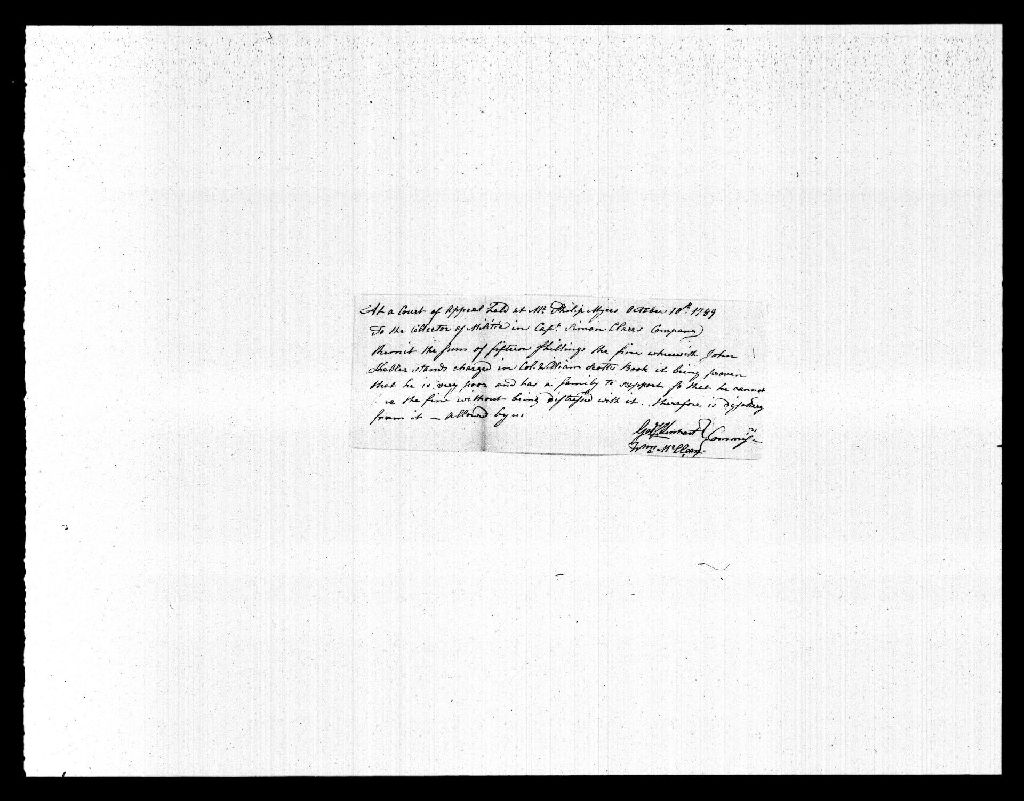 At a Court of Appeal held at Mr. Philip Myres October 10th. 1789
To the Collector of Militia in Capt. Simon Company
themit the sum of fifteen shillings the fine wherewith John
stands charged in Col. William Scotts Book it being proven
that he is very poor and has a family to support so that he cannot
the fine without being distressed with it, therefore is
from it — allowed by us
Commiss
Wm. McClary